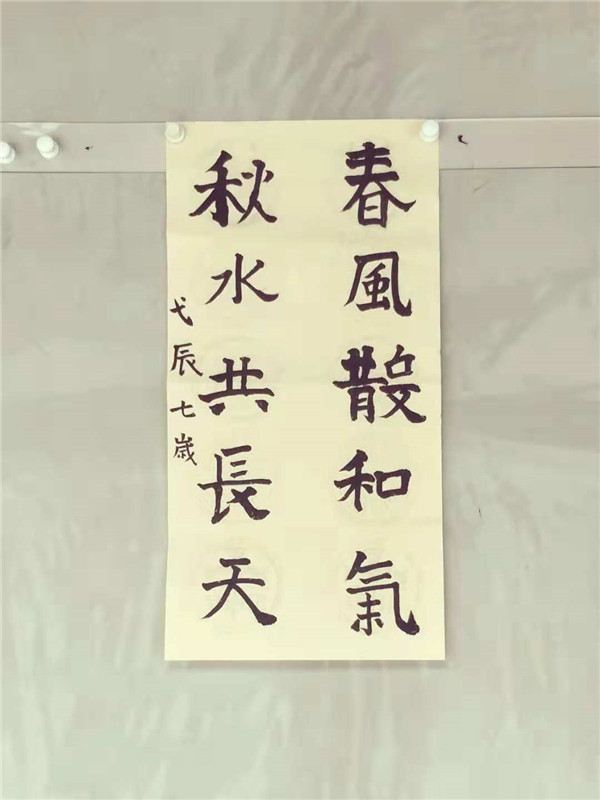 春風散和氣
秋水共長天
弋辰七歲